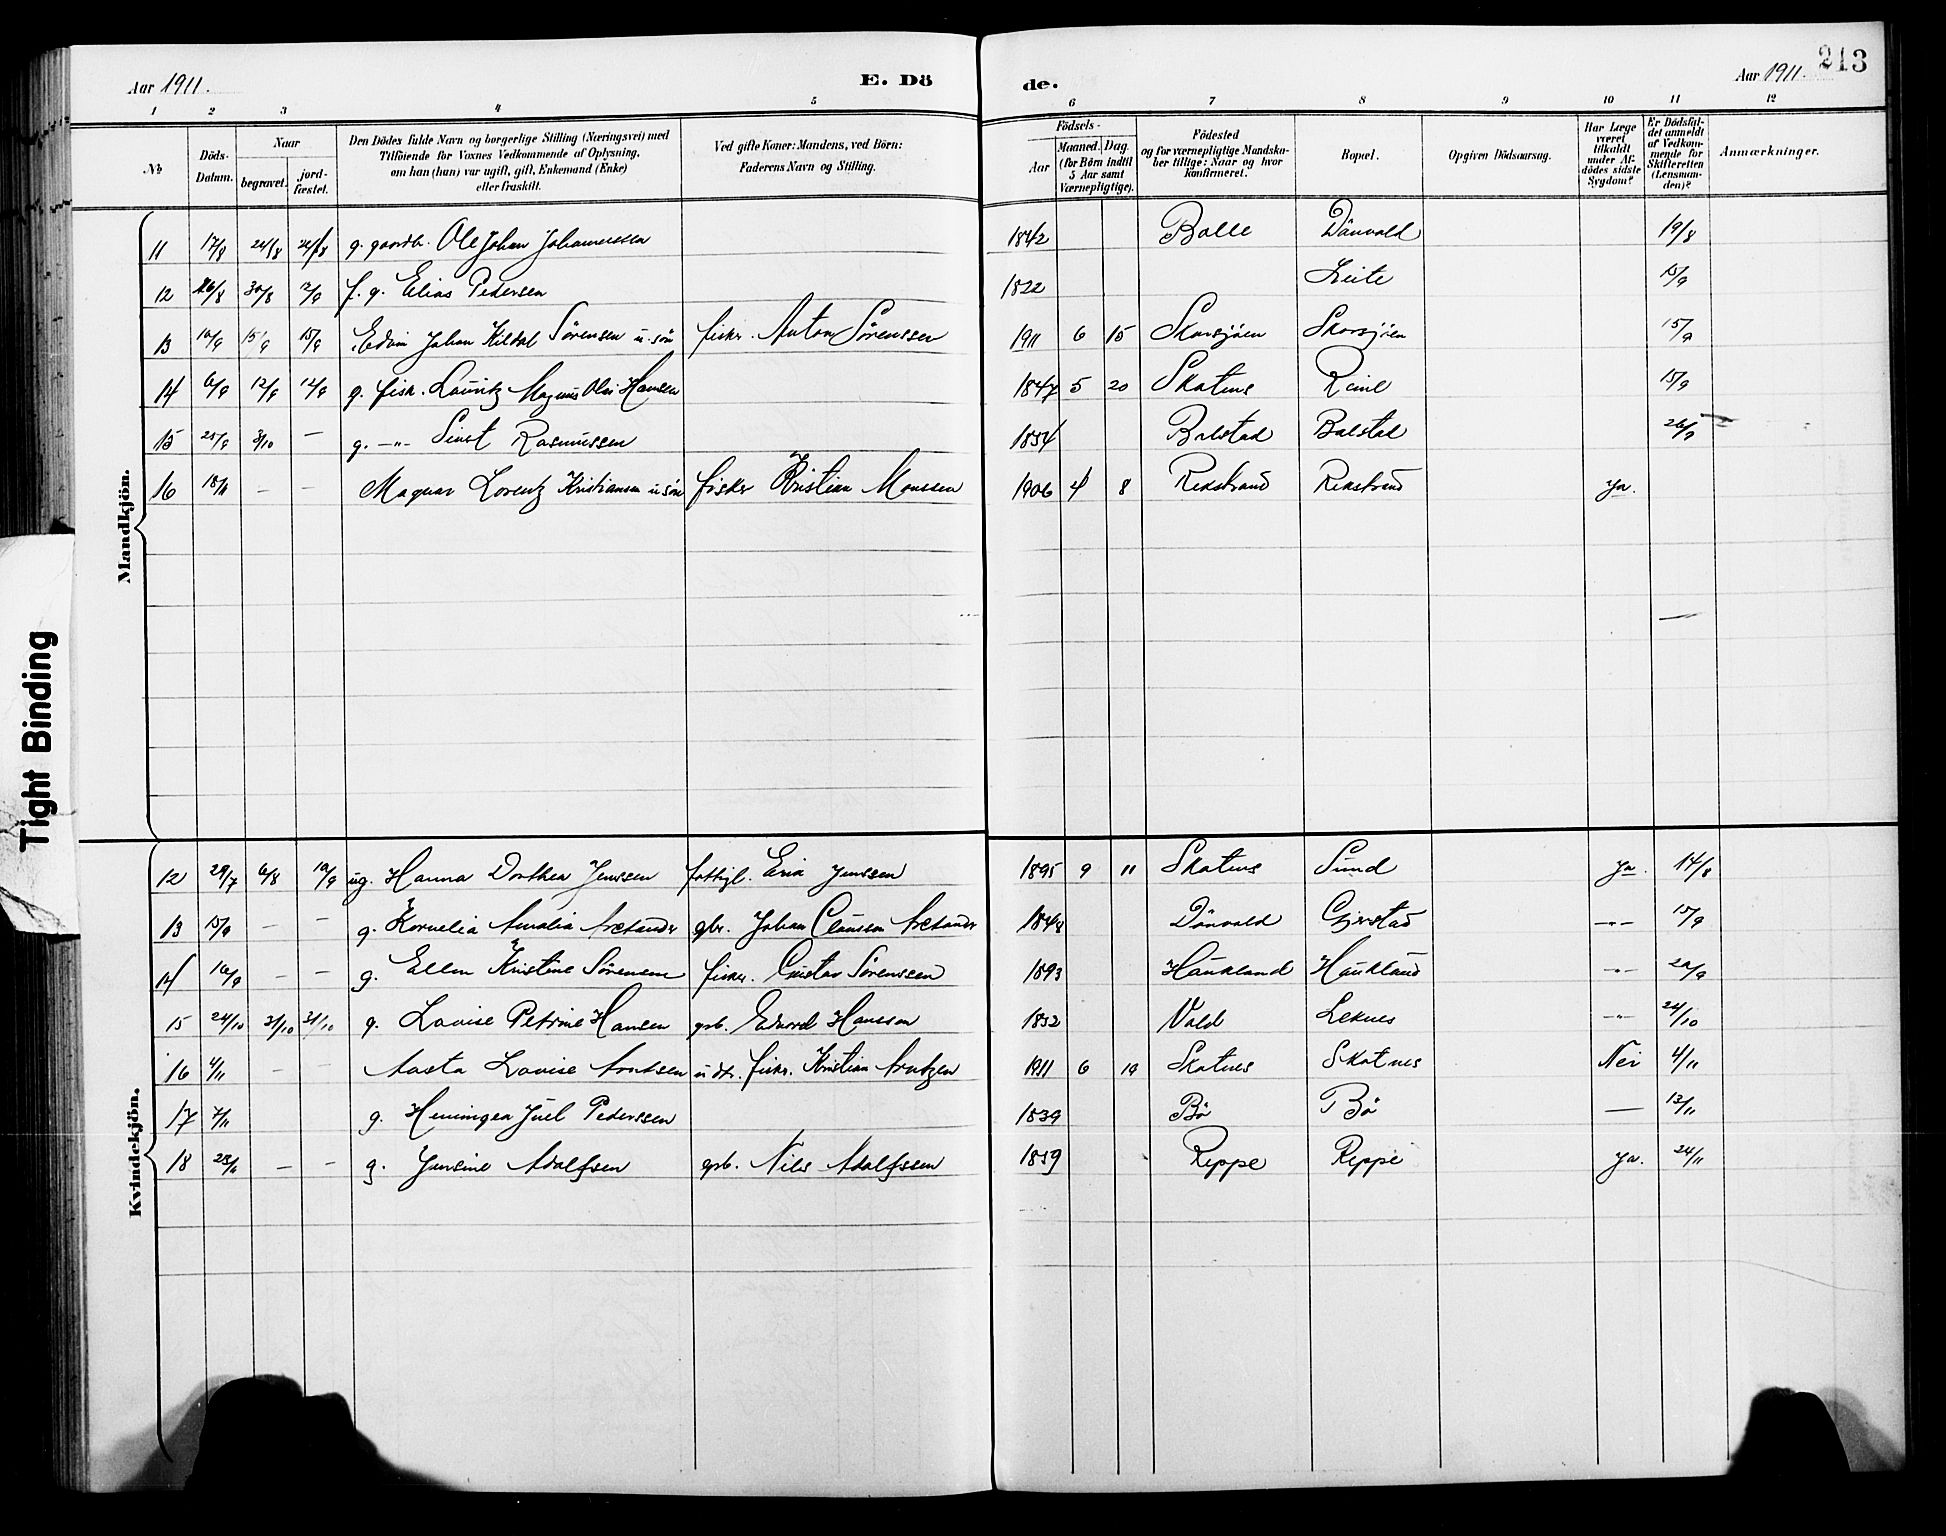 Aar 1911.
E. Döde.
Aar 1911.
213
1 2 3 4 5 6 7 8 9 10 11 12
No
Döds-Datum.
Naar
begravet.
jord-fæstet.
Den Dödes fulde Navn og borgerlige Stilling (Næringsvei) med
Tilföiende for Voxnes Vedkommende af Oplysning,
om han (hun) var ugift, gift, Enkemand (Enke)
eller fraskilt.
Ved gifte Koner: Mandens, ved Börn:
Faderens Navn og Stilling.
Födsels-
Aar
Maaned. Dag.
(for Börn indtil
5 Aar samt
Værnepligtige).
Födested
og for værnepligtige Mandska-
ber tillige: Naar og hvor
konfirmeret.
Bopæl.
Opgiven Dödsaarsag.
Har Læge
været
tilkaldt
under Af-
dödes sidste
Sygdom?
Er Dödsfal-
det anmeldt
af Vedkom-
mende for
Skifteretten
(Lensman-
den)?
Anmærkninger.
Mandkjön.
11 17/8 24/8 24/8 g. gaardb. Ole Johan Johannessen 1842 Bolle Dönvold 19/8
12 26/8 30/8 f. g. Elias Pedersen 1822 Leite 15/9
13 10/9 15/9 15/9 Edvin Johan Kildal Sörensen u. sön fisker. Anton Sörenssen 1911 6 15 Skarsjöen Skarsjöen 15/9
14 6/9 12/9 12/9 g. fisk. Lauritz Magnus Olai Hansen 1847 5 20 Skatnes Reine 15/9
15 25/9 3/10 — g. -"- Sivert Rasmussen 1854 Balstad Balstad 26/9
16 18/11 — — Magnar Lorentz Kristiansen u sön fisker Kristian Monssen 1906 4 8 Rekstrand Rekstrand ja.
Kvindekjön.
12 29/7 6/8 10/9 ug. Hanna Dorthea Jenssen fattigl. Jenssen 1895 9 11 Skatnes Sund ja. 14/8
13 15/9 — — g. Kornelia Amalia gbr. Johan Clausen 1848 Dönvold Gjerstad -"- 15/9
14 16/9 — — g. Ellen Kristine Sörensen fisker. Gustav Sörenssen 1893 Haukland Haukland -"- 20/9
15 24/10 31/10 31/10 g. Lovise Petrine Hansen grb. Edvard Hanssen 1852 Vold Leknes -"- 24/10
16 4/11 — — Aasta Lovise Arntsen u dtr. fisker. Kristian Arntzen 1911 6 19 Skatnes Skatnes Nei 4/11
17 7/11 g. Henningea Juel Pederssen 1839 Bö Bö — 13/11
18 23/11 — — g. Jensine Adolfsen grb. Nils Adolfssen 1859 Reppe Reppe ja. 24/11
Tight Binding